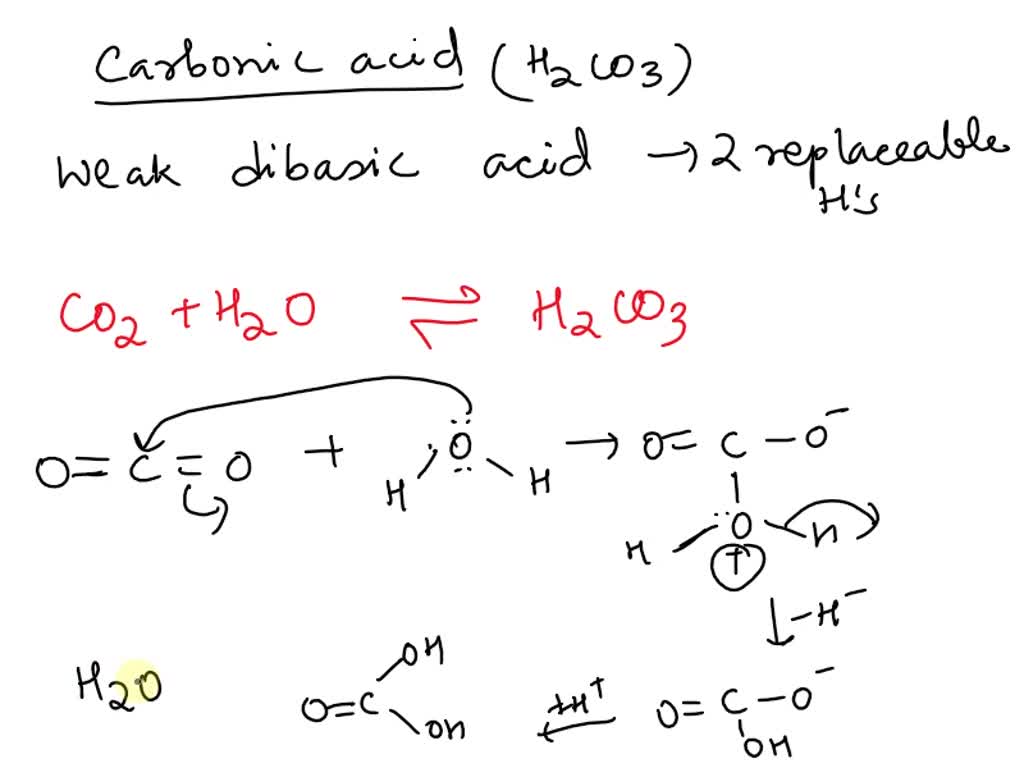 Carbonic acid (H2CO3)
Weak dibasic acid → 2 replaceable
H's
CO2 + H2O ⇌ H2CO3
O=C=O + H Ö H → O=C-O⁻
H O H
+
-H⁻
H2O O=C OH OH ←+H⁺ O=C-O⁻
OH